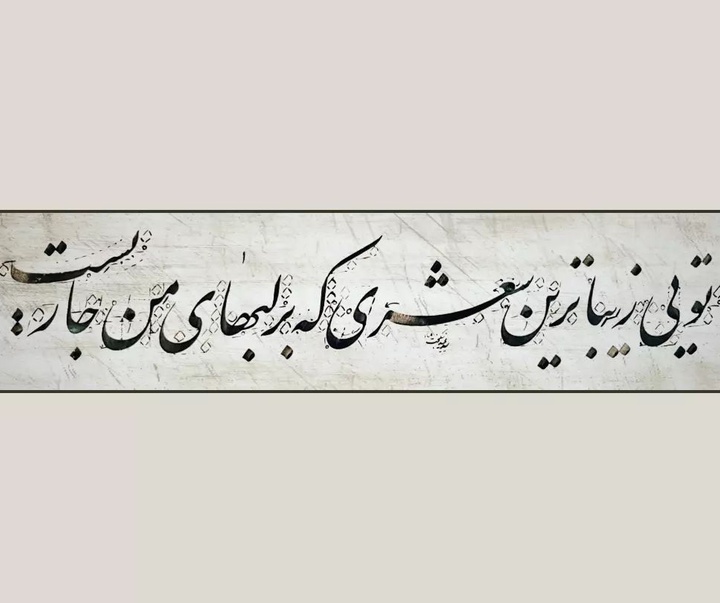 تویی زیباترین شعری که بر لبهای من جاریست